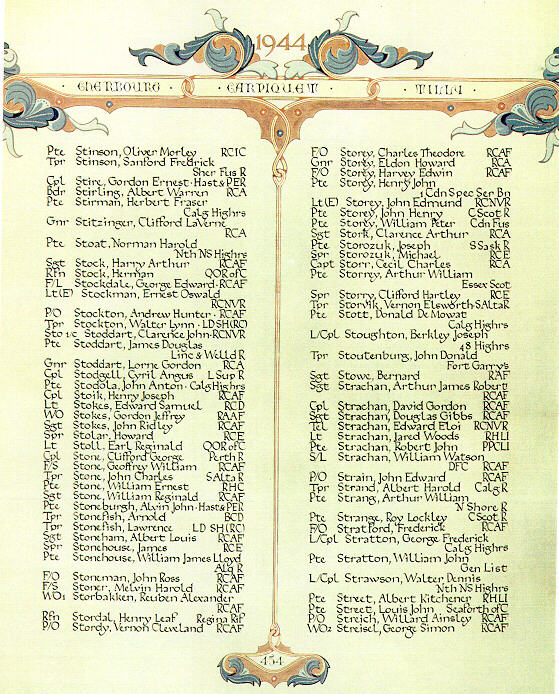 1944
CHERBOURG · CARPIQUET · TILLY
Pte Stinson, Oliver Morley RCIC
Tpr Stinson, Sanford Fredrick
Sher Fus R
Cpl Stire, Gordon Ernest · Hast & PER
Bdr Stirling, Albert Warren RCA
Pte Stirman, Herbert Fraser
Calg Highrs
Gnr Stitzinger, Clifford LaVerne
RCA
Pte Stoat, Norman Harold
Nth NS Highrs
Sgt Stock, Harry Arthur RCAF
Rfn Stock, Herman QOR of C
F/L Stockdale, George Edward · RCAF
Lt(E) Stockman, Ernest Oswald
RCNVR
P/O Stockton, Andrew Hunter · RCAF
Tpr Stockton, Walter Lynn · LD SH(RC)
Sto 1c Stoddart, Clarence John · RCNVR
Pte Stoddart, James Douglas
Linc & Welld R
Gnr Stoddart, Lorne Gordon RCA
Cpl Stodgell, Cyril Angus L Sup R
Pte Stodola, John Anton · Calg Highrs
Cpl Stoik, Henry Joseph RCAF
Lt Stokes, Edward Samuel RCD
WO Stokes, Gordon Jeffrey RAAF
Sgt Stokes, John Ridley RCAF
Spr Stolar, Howard RCE
Lt Stoll, Earl Reginald QOR of C
Cpl Stone, Clifford George Perth R
F/S Stone, Geoffrey William RCAF
Tpr Stone, John Charles SAlta R
Pte Stone, William Ernest RHC
Sgt Stone, William Reginald RCAF
Pte Stoneburgh, Alvin John · Hast & PER
Tpr Stonefish, Arnold BCD
Tpr Stonefish, Lawrence LD SH(RC)
Sgt Stoneham, Albert Louis RCAF
Spr Stonehouse, James RCE
Pte Stonehouse, William James Lloyd
Alq R
F/O Stoneman, John Ross RCAF
F/S Stoner, Melvin Harold RCAF
WO1 Storbakken, Reuben Alexander
RCAF
Rfn Stordal, Henry Leaf Regina Rif
P/O Stordy, Vernon Cleveland RCAF
F/O Storey, Charles Theodore RCAF
Gnr Storey, Eldon Howard RCA
F/O Storey, Harvey Edwin RCAF
Pte Storey, Henry John
1 Cdn Spec Ser Bn
Lt(E) Storey, John Edmund RCNVR
Pte Storey, John Henry CScot R
Pte Storey, William Peter Cdn Fus
Sgt Stork, Clarence Arthur RCA
Pte Storozuk, Joseph SSask R
Spr Storozuk, Michael RCE
Capt Storr, Cecil Charles RCA
Pte Storrey, Arthur William
Essex Scot
Spr Storry, Clifford Hartley RCE
Tpr Storvik, Vernon Elsworth · SAlta R
Pte Stott, Donald De Mowat
Calg Highrs
L/Cpl Stoughton, Berkley Joseph
48 Highrs
Tpr Stoutenburg, John Donald
Fort Garry's
Sgt Stowe, Bernard RAF
Sgt Strachan, Arthur James Robert
RCAF
Cpl Strachan, David Gordon RCAF
Sgt Strachan, Douglas Gibbs RCAF
Tel Strachan, Edward Eloi RCNVR
Lt Strachan, Jared Woods RHLI
Pte Strachan, Robert John PPCLI
S/L Strachan, William Watson
DFC RCAF
P/O Strain, John Edward RCAF
Tpr Strand, Albert Harold Calg R
Pte Strang, Arthur William
N Shore R
Pte Strange, Roy Lockley CScot R
F/O Stratford, Frederick RCAF
L/Cpl Stratton, George Frederick
Calg Highrs
Pte Stratton, William John
Gen List
L/Cpl Strawson, Walter Dennis
Nth NS Highrs
Pte Street, Albert Kitchener RHLI
Pte Street, Louis John Seaforth of C
P/O Streich, Willard Ainsley RCAF
WO2 Streisel, George Simon RCAF
454